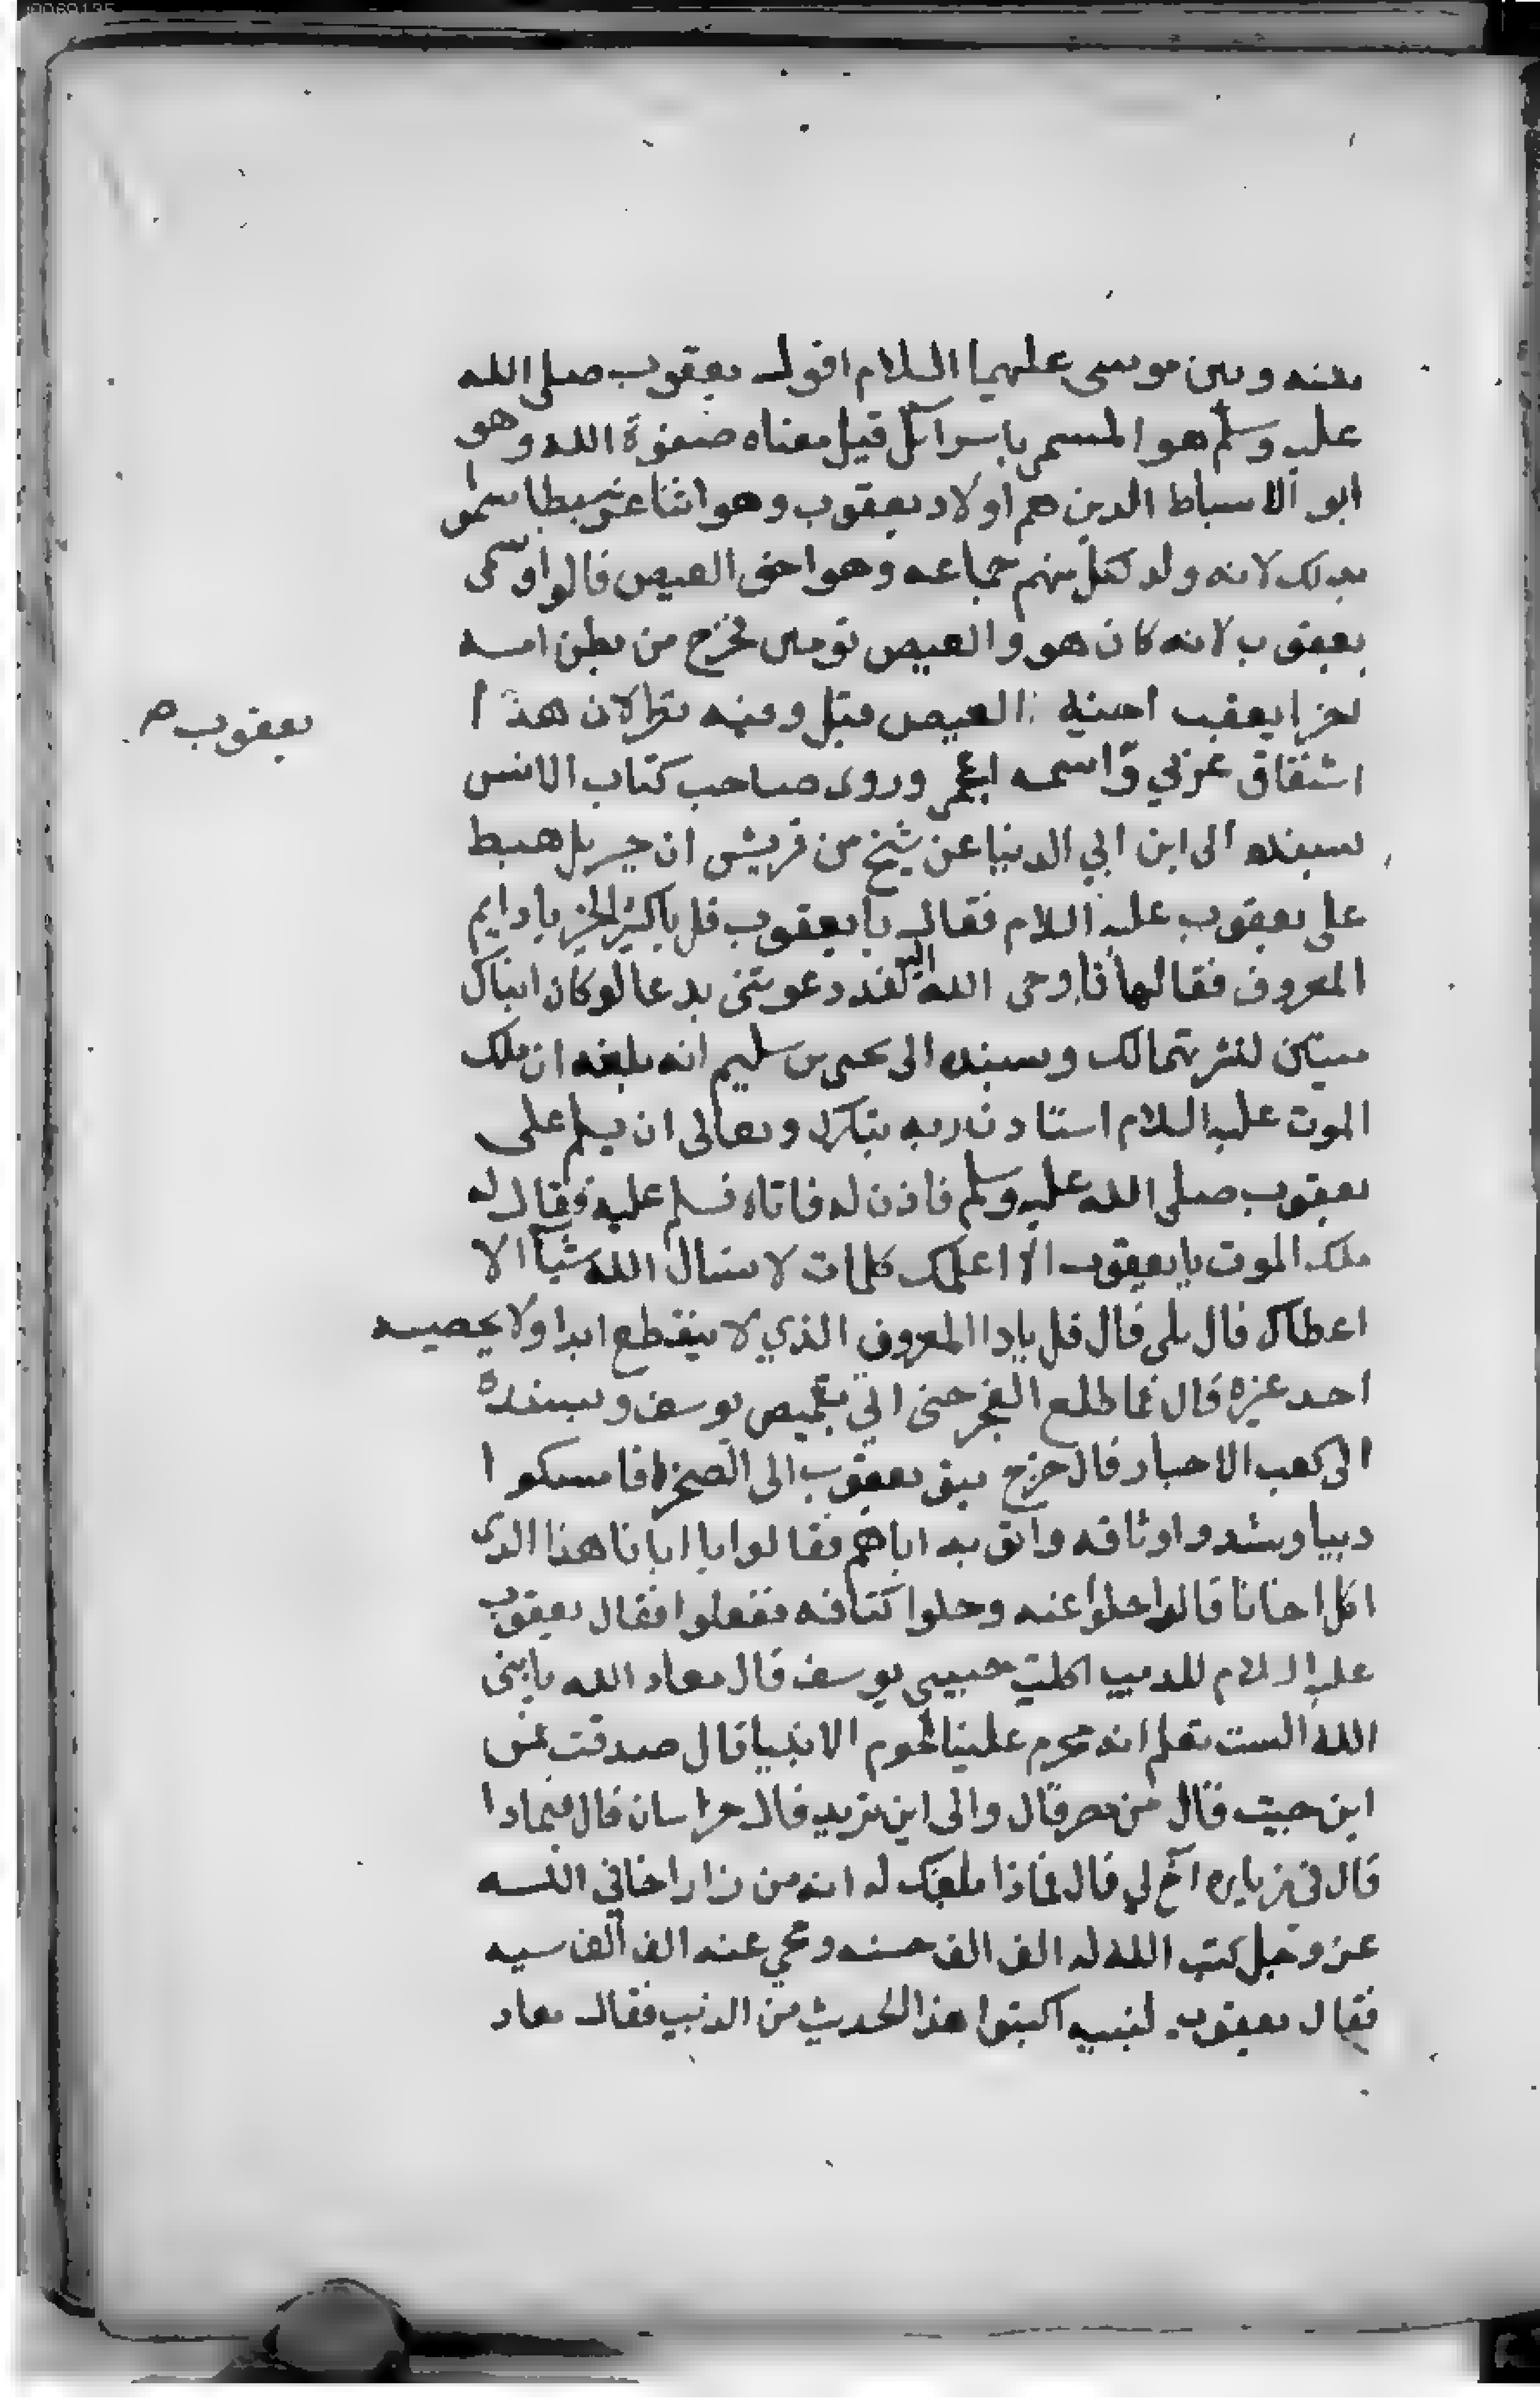 بينه وبين موسى عليهما السلام اقول يعقوب صلى الله
عليه وسلم هو المسمى باسرائل قيل معناه صفوة الله وهو
ابو الاسباط الدين هم اولاد يعقوب وهو اثنا عشر سبطا سموا
بدلك لانه ولد لكل منهم جماعه وهو اخو العيص قالوا وسمى
يعقوب لانه كان هو والعيص تومين فخرج من بطن امه
اخرا يعقب اخيه العيص قيل وفيه نظر لان هذا
يعقوب ص
اشتقاق عربي واسمه اعجمي وروى صاحب كتاب الانس
بسنده الى ابن ابي الدنيا عن شيخ من قريش ان جبريل هبط
على يعقوب عليه السلام فقال يا يعقوب قل يا كثير الخير يا دايم
المعروف فقالها فاوحى الله اليه لقد دعوتني بدعا لو كان ابناك
ميتين لنشرتهما لك وبسنده الى يحيى بن سليم انه بلغه ان ملك
الموت عليه السلام استادن ربه تبارك وتعالى ان يسلم على
يعقوب صلى الله عليه وسلم فاذن له فاتاه فسلم عليه فقال له
ملك الموت يا يعقوب الا اعلمك كلمات لا تسال الله شيا الا
اعطاك قال بلى قال قل يا دا المعروف الذي لا ينقطع ابدا ولا يحصيه
احد غيره قال فما طلع الفجر حتى اتي بقميص يوسف وبسنده
الى كعب الاحبار قال خرج بنو يعقوب الى الصحرا فامسكوا
ديبا وشدوا وثاقه واتو به اباهم فقالوا يا ابانا هذا الدى
اكل اخانا قال حلوا عنه وحلوا كتافه ففعلوا فقال يعقوب
عليه السلام للديب اكلت حبيبي يوسف قال معاد الله يا نبي
الله الست تعلم انه محرم علينا لحوم الانبيا قال صدقت فمن
اين جيت قال من مصر قال والى اين تريد قال خراسان قال فيمادا
قال في زياره اخ لي قال فماذا بلغك له انه من زار اخا في الله
عز وجل كتب الله له الف الف حسنه ومحي عنه الف الف سيه
فقال يعقوب لبنيه اكتبوا هذا الحديث من الديب فقال معاد